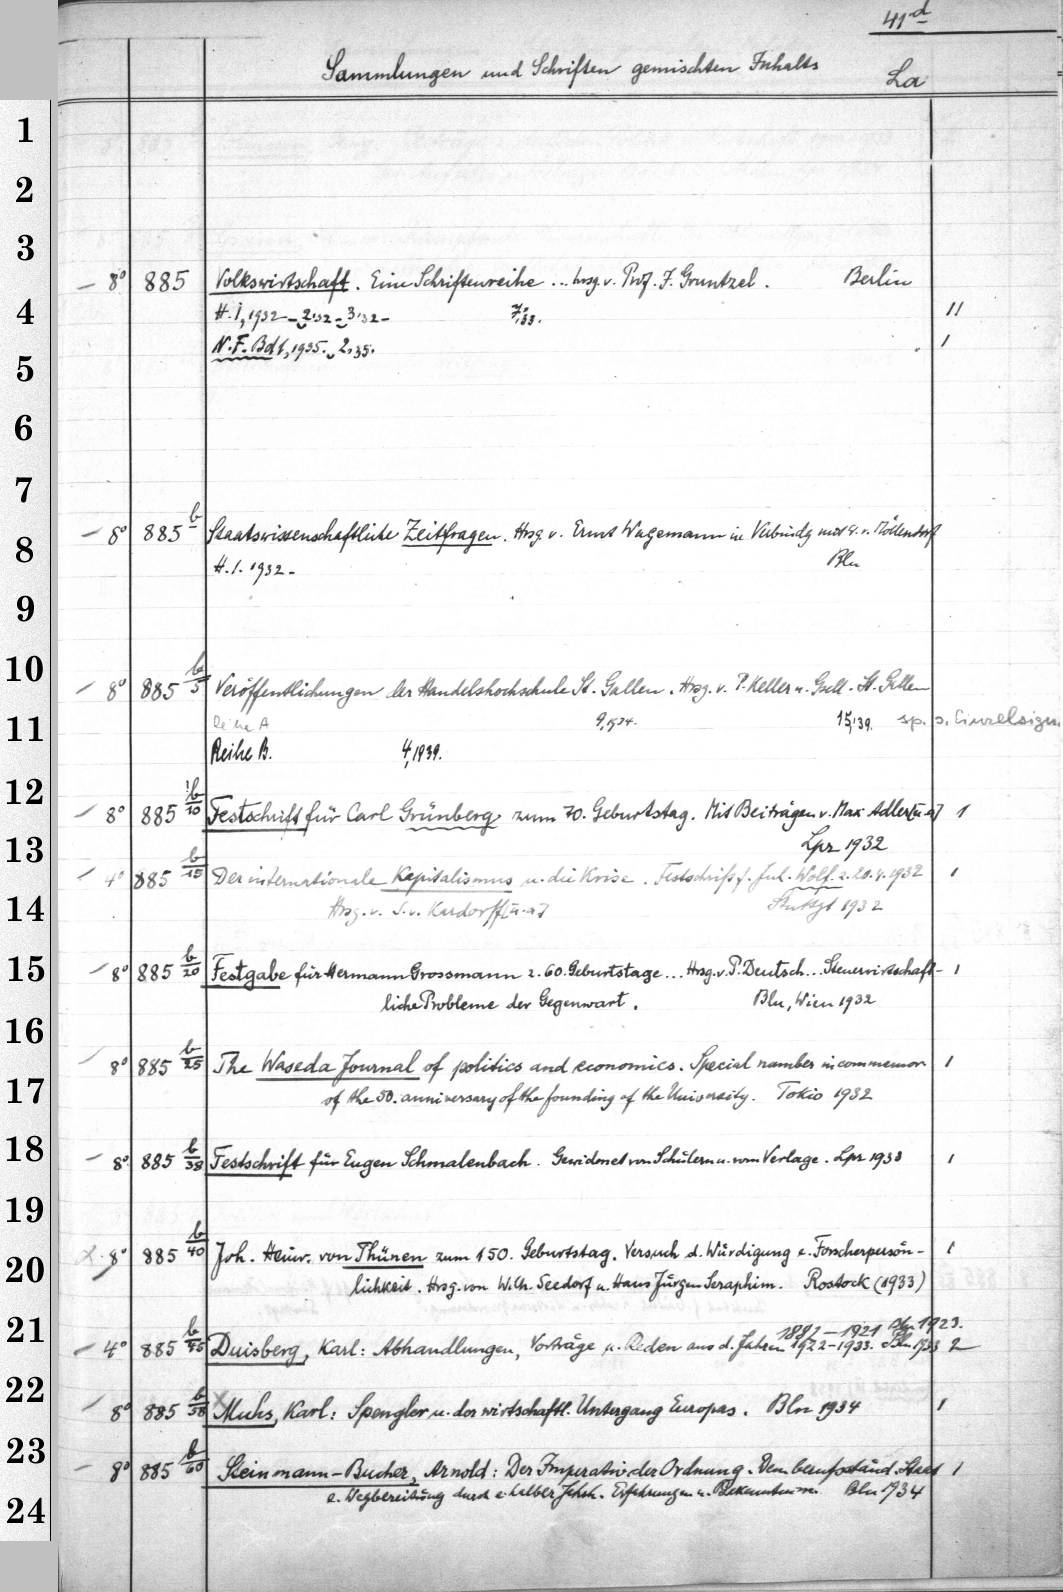 41d
Sammlungen und Schriften gemischten Inhalts La
1
2
3
– 8° 885 Volkswirtschaft. Eine Schriftenreihe ... hrsg. v. Prof. J. Gruntzel. Berlin
4 H. 1, 1932 – 2,32 – 3,32 – 7,33. 11
N. F. Bd 1, 1935. 2,35. 1
5
6
7
– 8° 885 b Staatswissenschaftliche Zeitfragen. Hrsg. v. Ernst Wagemann in Verbindg mit v. Möllendorf
8 H. 1. 1932 – Bln
9
10 – 8° 885 b/5 Veröffentlichungen der Handelshochschule St. Gallen. Hrsg. v. P. Keller u. Gsell. St. Gallen
11 Reihe A 9,34. 15,39. sp. s. Einzelsign.
Reihe B. 4,1939.
12 – 8° 885 b/10 Festschrift für Carl Grünberg zum 70. Geburtstag. Mit Beiträgen v. Max Adler [u. a.] 1
13 Lpz 1932
– 4° 885 b/15 Der internationale Kapitalismus u. die Krise. Festschrift f. Jul. Wolf z. 20. 4. 1932 1
14 Hrsg. v. S. v. Kardorff [u. a.] Stuttgt 1932
15 – 8° 885 b/20 Festgabe für Hermann Grossmann z. 60. Geburtstage ... Hrsg. v. P. Deutsch... Steuerwirtschaft- 1
liche Probleme der Gegenwart. Bln, Wien 1932
16
– 8° 885 b/25 The Waseda Journal of politics and economics. Special number in commemor 1
17 of the 50. anniversary of the founding of the University. Tokio 1932
18 – 8° 885 b/38 Festschrift für Eugen Schmalenbach. Gewidmet von Schülern u. vom Verlage. Lpz 1933 1
19
8° 885 b/40 Joh. Heinr. von Thünen zum 150. Geburtstag. Versuch d. Würdigung e. Forscherpersön- 1
20 lichkeit. Hrsg. von W. Seedorf u. Hans Jürgen Seraphim. Rostock (1933)
21 1882 – 1921 Bln 1923.
– 4° 885 b/45 Duisberg, Karl: Abhandlungen, Vorträge u. Reden aus d. Jahren 1922–1933. Bln 1933 2
22 – 8° 885 b/58 Muhs, Karl: Spengler u. der wirtschaftl. Untergang Europas. Bln 1934 1
23 – 8° 885 b/60 Steinmann-Bucher, Arnold: Der Imperativ der Ordnung. Dem berufsständ. Staat 1
24 e. Wegbereitung durch e. halber Jahrh. Erfahrungen u. Bln 1934